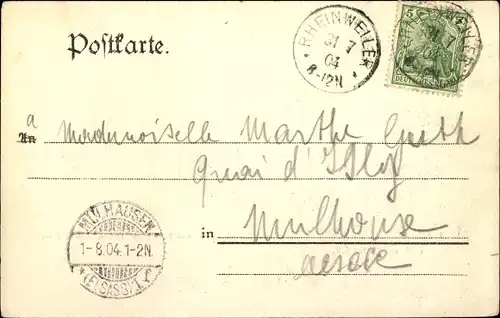 Postkarte.
RHEINWEILER
31 7
04
8-12N
5
a
An Mademoiselle Marthe
Quai d'Illz
in Mulhouse
Alsace
MÜLHAUSEN
1-8.04.1-2N
(ELSASS)